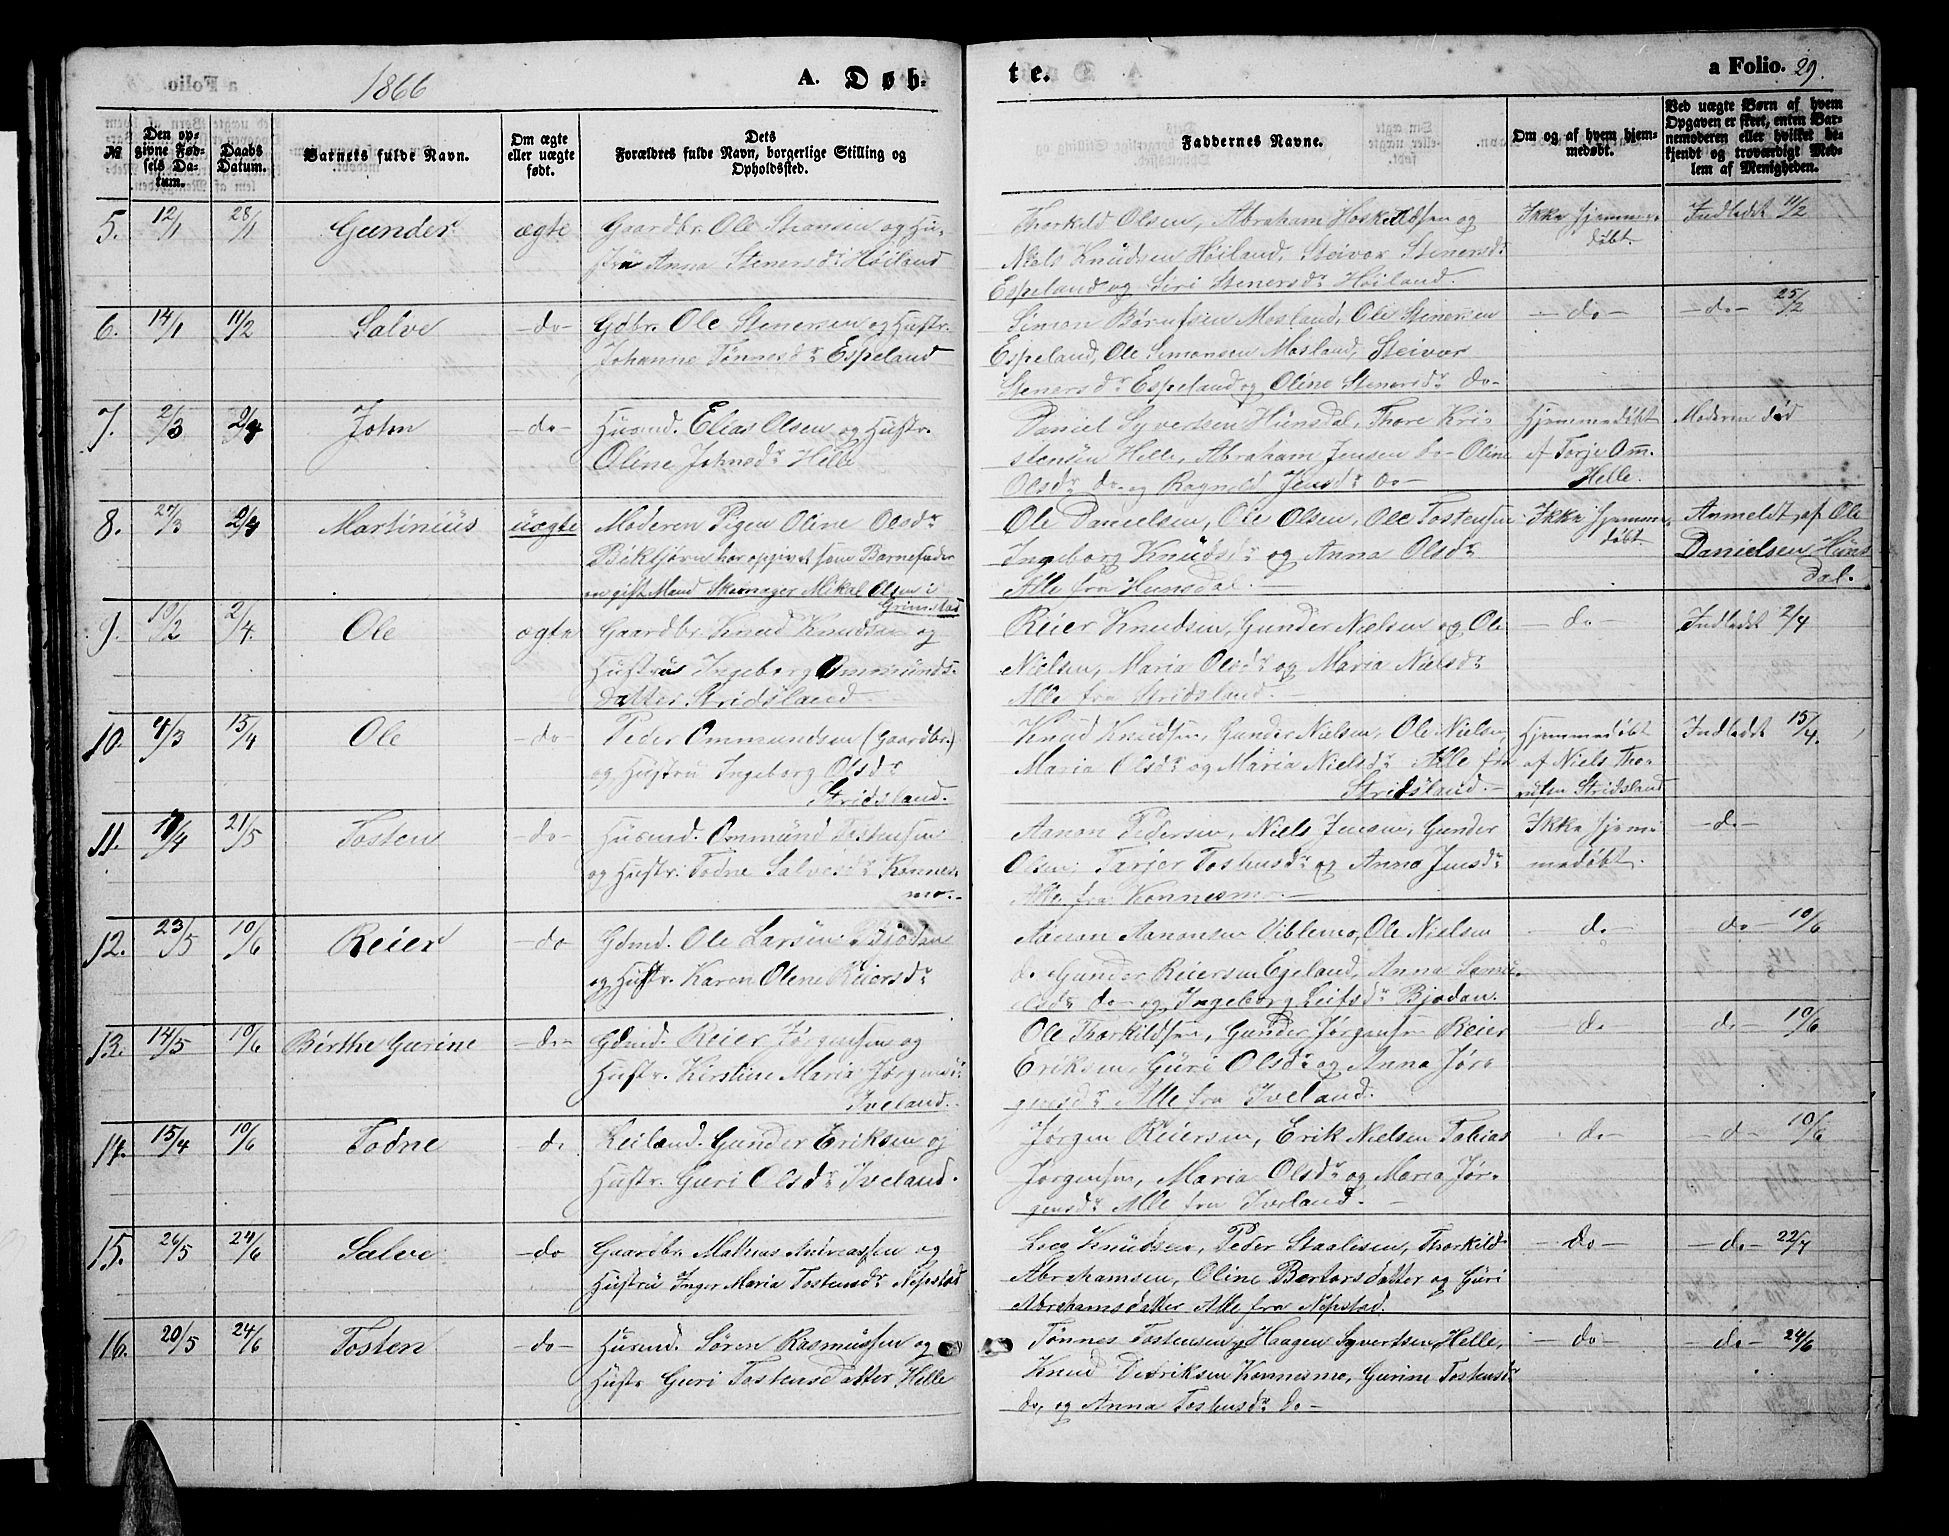 1866
A. Døb-
te.
a Folio. 29.
№
Den op-
givne Fød-
sels Da-
tum.
Daabs
Datum.
Barnets fulde Navn.
Om ægte
eller uægte
født.
Dets
Forældres fulde Navn, borgerlige Stilling og
Opholdssted.
Faddernes Navne.
Om og af hvem hjem-
medøbt.
Ved uægte Børn af hvem
Opgaven er skeet, enten Bar-
nemoderen eller hvilket be-
kjendt og troværdigt Med-
lem af Menigheden.
5. 12/1 28/1 Gunder ægte
Gaardbr. Ole og Hu-
stru Anna Stenersdr Høiland
Thorkild Olsen, Abraham og
Niels Knudsen Høiland, Steivor Stenersdr
Espeland og Siri Stenersdr Høiland.
Ikke hjemme-
døbt.
Indledet 11/2
6. 14/1 11/2 Salve -do-
Gdbr. Ole Stenersen og Hustr.
Johanne Tønnesdr Espeland
Simon Mosland, Ole Stenersen
Espeland, Ole Simonsen Mosland, Steivor
Stenersdr Espeland og Oline Stenersdr do-
-do-
-do- 25/2
7. 2/3 2/4 John -do-
Husmd. Elias Olsen og Hustr.
Oline Johnsdr Helle
Daniel Syvertsen Hunsdal, Thore Kri-
stensen Helle, Abraham Jensen do- Oline
Olsdr do- og Ragnild Jensdr do-
Hjemmedøbt
af Torje Om.
Helle.
Moderen død
8. 27/3 2/4 Martinius uægte
Moderen Pigen Oline Olsdr
har opgivet som Barnefader
en gift Mand Mikal Olsen i
Grimstad
Ole Danielsen, Ole Olsen, Ole Tostensen
Ingeborg Knudsdr og Anna Olsdr
Alle fra Hunsdal.
Ikke hjemme-
døbt.
Anmeldt af Ole
Danielsen Huns-
dal.
9. 10/2 2/4. Ole ægte
Gaardbr. Knud Knudsen og
Hustru Ingeborg Ommunds-
datter Stridsland
Reier Knudsen, Gunder Nielsen og Ole
Nielsen, Maria Olsdr og Maria Nielsdr
Alle fra Stridsland.
-do-
Indledet 2/4
10. 4/3 15/4 Ole -do-
Peder Ommundsen (Gaardbr.)
og Hustru Ingeborg Olsdr
Stridsland.
Knud Knudsen, Gunder Nielsen, Ole Nielsen,
Maria Olsdr og Maria Nielsdr Alle fra
Stridsland.
Hjemmedøbt
af Niels Tho-
Stridsland
Indledet 15/4.
11. 17/4 21/5 Tosten -do-
Husmd. Ommund Tostensen
og Hustr. Todne Salvesdr Konnes-
mo.
Aanon Pedersen, Niels Jensen, Gunder
Olsen, Tarjer Tostensdr og Anna Jensdr
Alle fra Konnesmo.
Ikke hjem-
medøbt.
-do-
12. 23/5 10/6 Reier -do
Gdmd. Ole Larsen Bjodan
og Hustr. Karen Olene Reiersdr
Aanon Aanonsen Viblemo, Ole Nielsen
do Gunder Reiersen Egeland, Anna Samu-
elsdr do- og Ingeborg Leifsdr Bjodan.
-do-
-do- 10/6
13. 14/5 10/6 Birthe Gurine -do-
Gdmd. Reier Jørgensen og
Hustr. Kirstine Maria Jørgensdr
Iveland.
Ole Thorkildsen, Gunder Jørgensen Reier
Eriksen, Guri Olsdr og Anna Jør-
gensdr Alle fra Iveland.
-do
-do- 10/6
14. 15/4 10/6 Todne -do
Leiland. Gunder Eriksen og
Hustr. Guri Olsdr Iveland.
Jørgen Reiersen, Erik Nielsen Tobias
Jørgensen, Maria Olsdr og Maria Jør-
gensdr Alle fra Iveland.
-do-
-do- 10/6
15. 26/5 24/6 Salve -do
Gaardbr. Mathias Andreassen og
Hustru Inger Maria Tostensdr Nepstad
Knudsen, Peder Staalesen, Thorkild
Abrahamsen, Oline Bortorsdatter og Guri
Abrahamsdatter Alle fra Nepstad.
-do-
-do- 22/7
16. 20/5 24/6 Tosten -do-
Husmd. Søren Rasmussen og
Hustr Guri Tostensdatter Helle
Tønnes Tostensen og Haagen Syvertsen Helle,
Knud Didriksen Konnesmo, Gurine Tostensdr
do, og Anna Tostensdr do-
-do
-do- 24/6